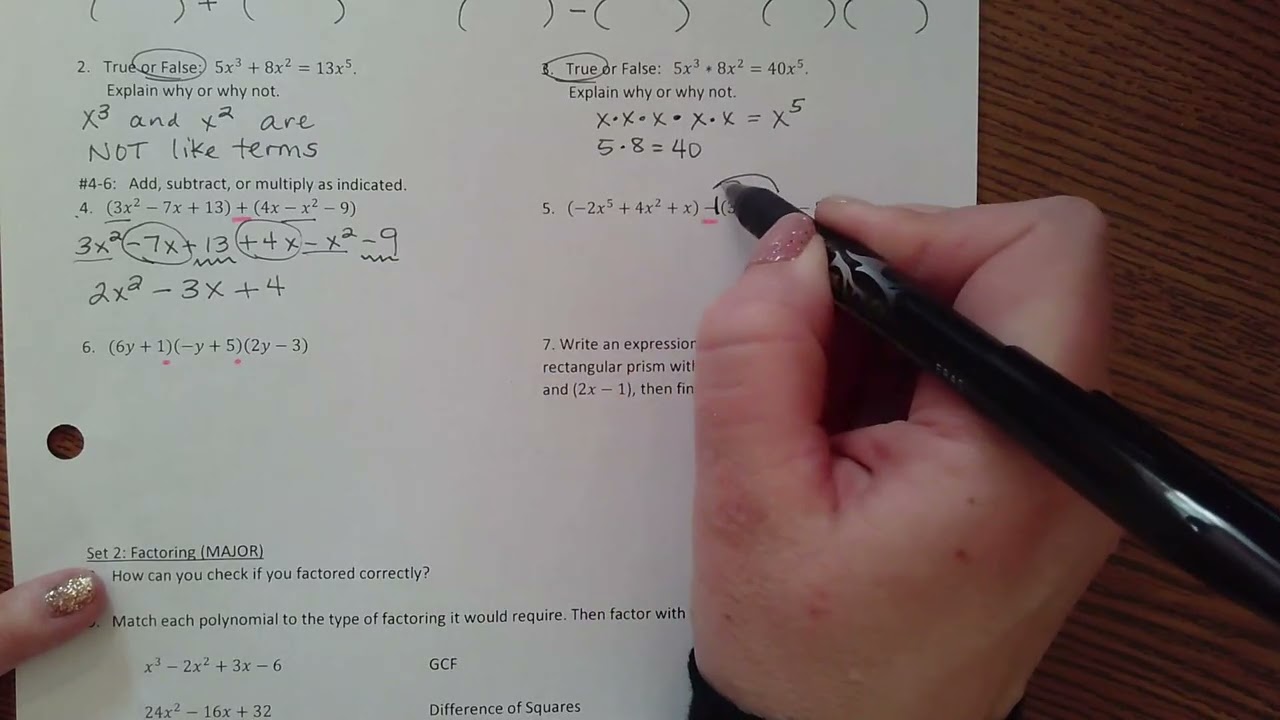 ( ) + ( ) ( ) − ( ) ( )( )
2. True or False: 5x³ + 8x² = 13x⁵.
Explain why or why not.
x³ and x² are
NOT like terms
3. True or False: 5x³ * 8x² = 40x⁵.
Explain why or why not.
x·x·x · x·x = x⁵
5·8 = 40
#4-6: Add, subtract, or multiply as indicated.
4. (3x² − 7x + 13) + (4x − x² − 9)
3x² − 7x + 13 + 4x − x² − 9
2x² − 3x + 4
5. (−2x⁵ + 4x² + x) −1(
6. (6y + 1)(−y + 5)(2y − 3)
7. Write an expression
rectangular prism
and (2x − 1), then
Set 2: Factoring (MAJOR)
How can you check if you factored correctly?
Match each polynomial to the type of factoring it would require. Then factor with
x³ − 2x² + 3x − 6 GCF
24x² − 16x + 32 Difference of Squares